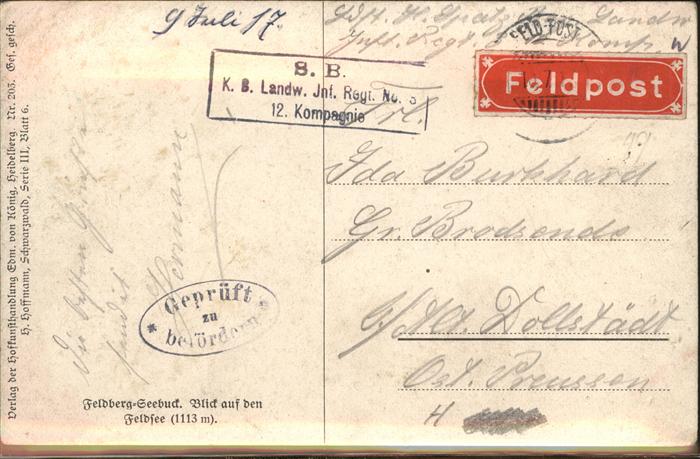 9 Juli 17.
S. B.
K. B. Landw. Inf. Regt. No. 3
12. Kompagnie
FELD-POST
Feldpost
Frl.
Ida Burkhard
Gr. Brodsende
b/ Alt Dollstädt
Ost. Preussen
Die besten Grüße
sendet
Hermann
Geprüft
zu
befördern
Feldberg-Seebuck. Blick auf den
Feldsee (1113 m).
Verlag der Hofkunsthandlung Edm. von König, Heidelberg. Nr. 205. Ges. gesch.
H. Hoffmann, Schwarzwald, Serie III, Blatt 6.